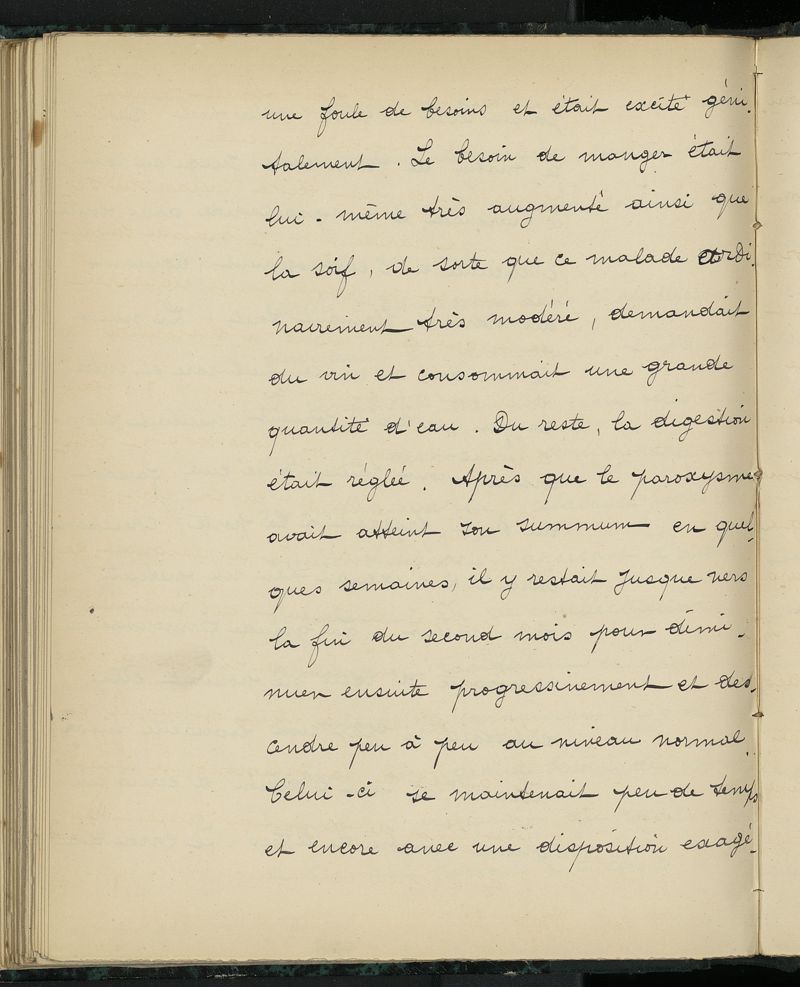 une foule de besoins et était excité géni-
talement. Le besoin de manger était
lui-même très augmenté ainsi que
la soif, de sorte que ce malade ordi-
nairement très modéré, demandait
du vin et consommait une grande
quantité d'eau. Du reste, la digestion
était réglée. Après que le paroxysme
avait atteint son summum en quel-
ques semaines, il y restait jusque vers
la fin du second mois pour dimi-
nuer ensuite progressivement et des-
cendre peu à peu au niveau normal.
Celui-ci se maintenait peu de temps
et encore avec une disposition exagé-